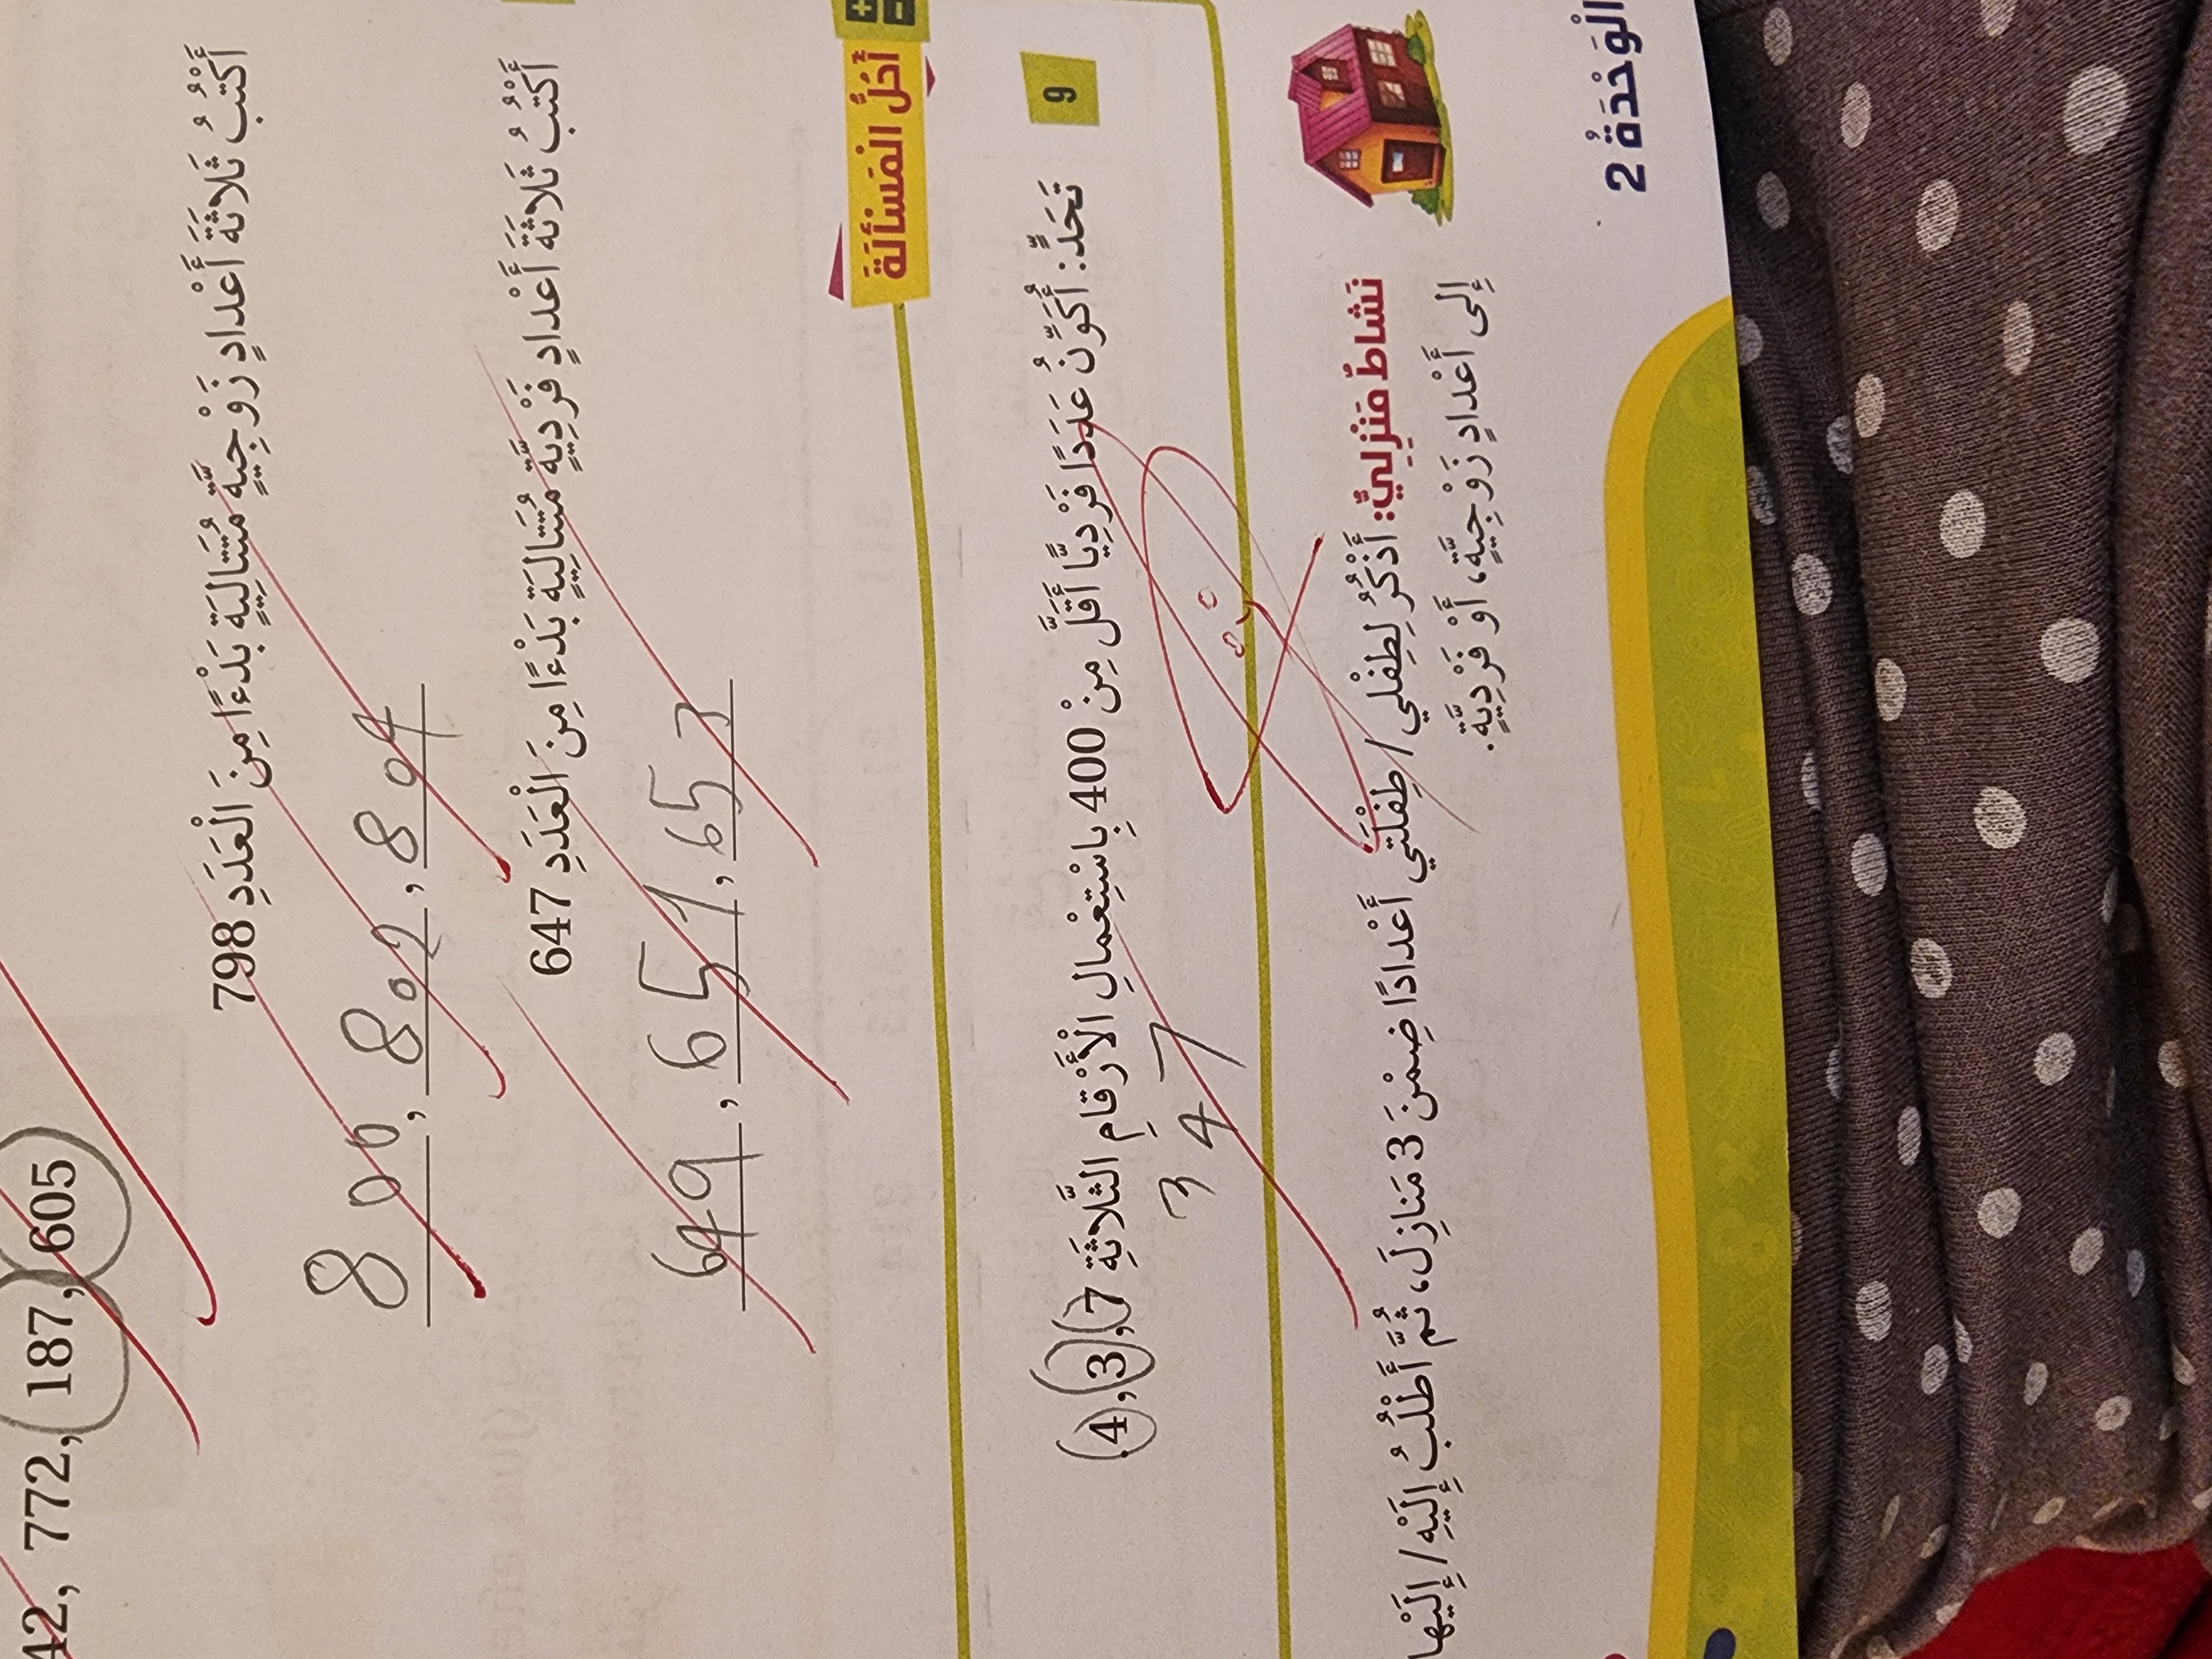 42, 772, 187, 605
أَكْتُبُ ثَلاثَةَ أَعْدادٍ زَوْجِيَّةٍ مُتَتالِيَةٍ بَدْءًا مِنَ الْعَدَدِ 798
800, 802, 804
أَكْتُبُ ثَلاثَةَ أَعْدادٍ فَرْدِيَّةٍ مُتَتالِيَةٍ بَدْءًا مِنَ الْعَدَدِ 647
649, 651, 653
أَحُلُّ الْمَسْأَلَةَ
9 تَحَدٍّ: أُكَوِّنُ عَدَدًا فَرْدِيًّا أَقَلَّ مِنْ 400 بِاسْتِعْمالِ الْأَرْقامِ الثَّلاثَةِ 4, 3, 7
347
نَشاطٌ مَنْزِلِيٌّ: أَذْكُرُ لِطِفْلي/ طِفْلَتي أَعْدادًا ضِمْنَ 3 مَنازِلَ، ثُمَّ أَطْلُبُ إِلَيْهِ/ إِلَيْها
إِلى أَعْدادٍ زَوْجِيَّةٍ، أَوْ فَرْدِيَّةٍ.
الْوَحْدَةُ 2